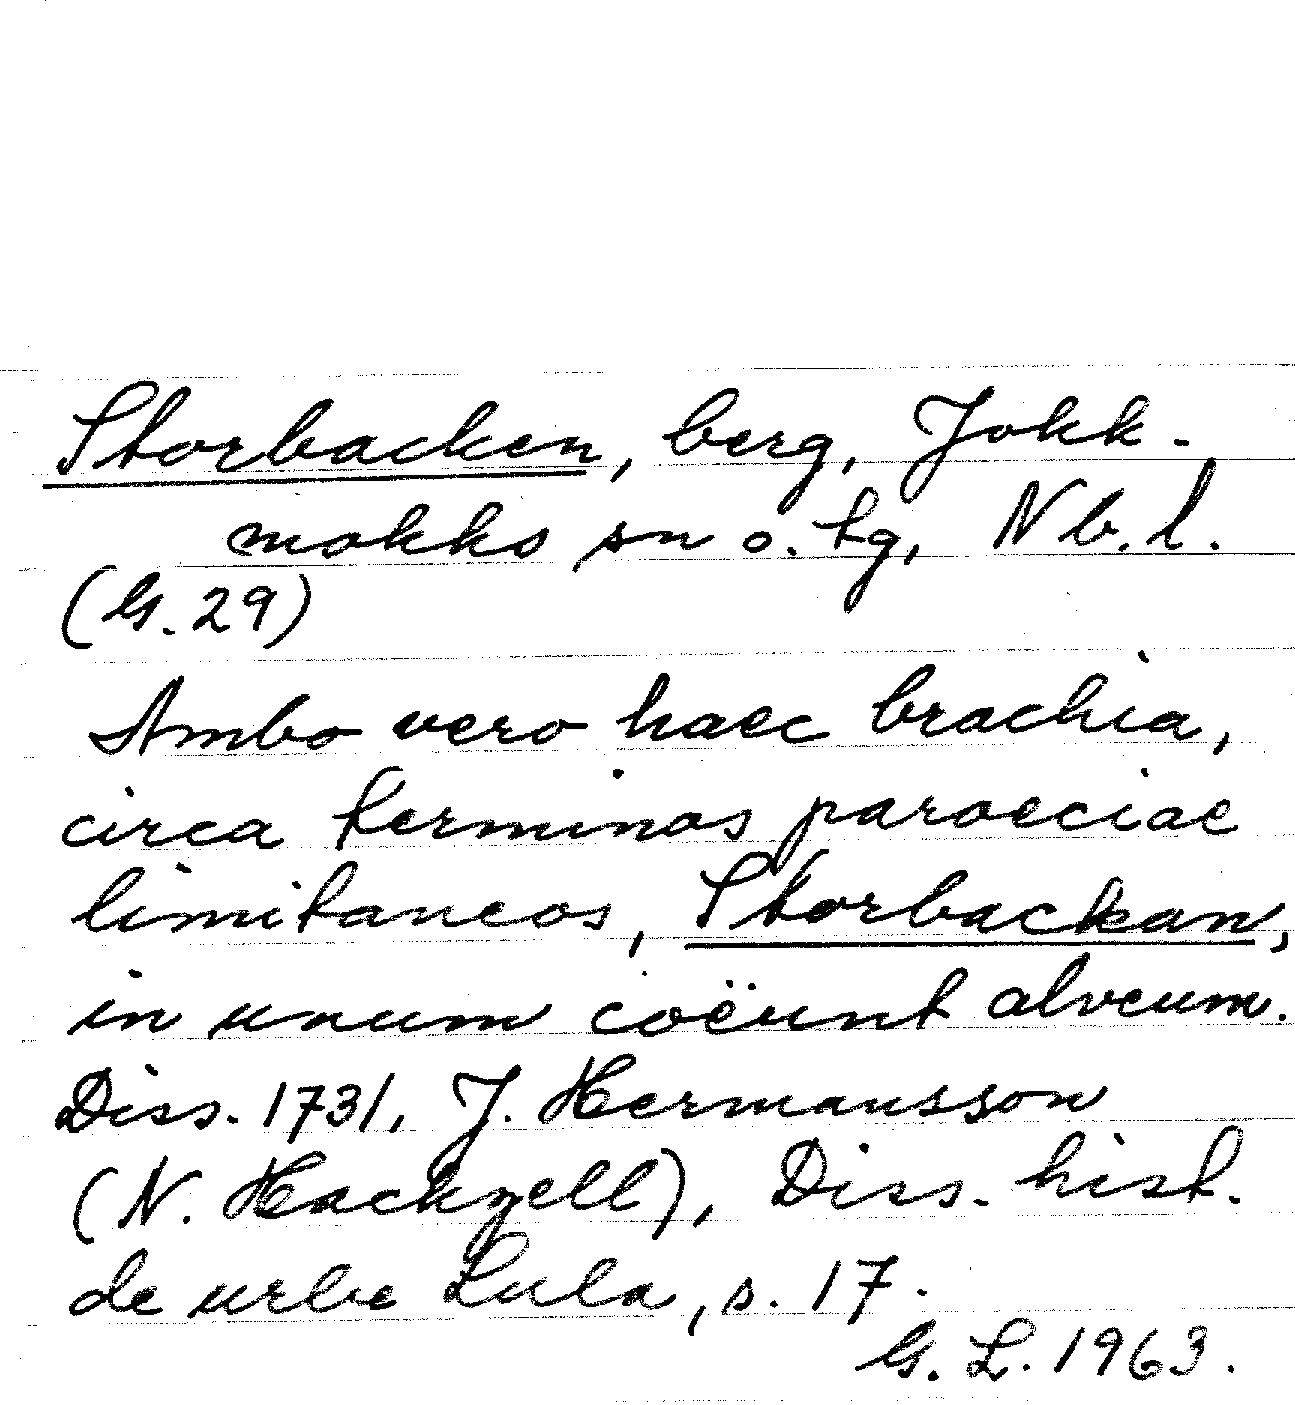 Storbacken, berg, Jokk-
mokks sn o. tg, Nb.l.
(G. 29)
Ambo vero haec brachia,
circa terminos paroeciae
limitaneos, Storbackan,
in unum coëunt alveum.
Diss. 1731, J. Hermansson
(N. Hackzell), Diss. hist.
de urbe Lula, s. 17.
G. L. 1963.